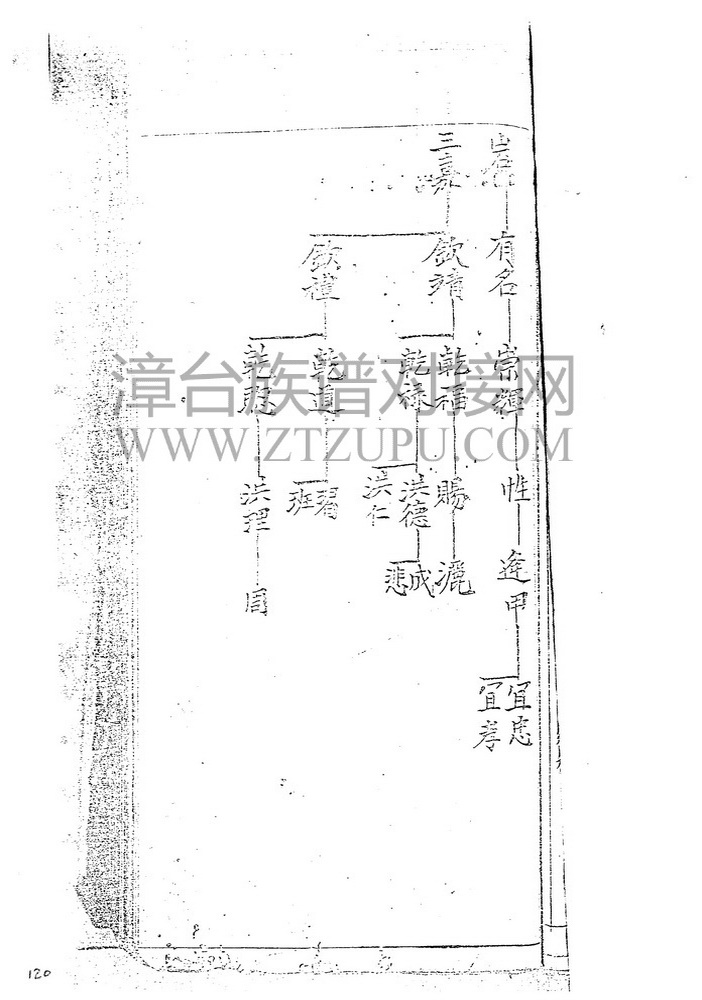 有名
崇
性
逢甲
宜忠
宜孝
三嘉
欽靖
乾福
賜
灑
乾祿
洪德
成
悲
洪仁
欽禮
乾道
習
班
乾
洪理
周
漳台族谱对接网
WWW.ZTZUPU.COM
120